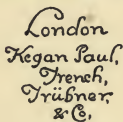 London
Kegan Paul,
Trench,
Trübner,
& Co.